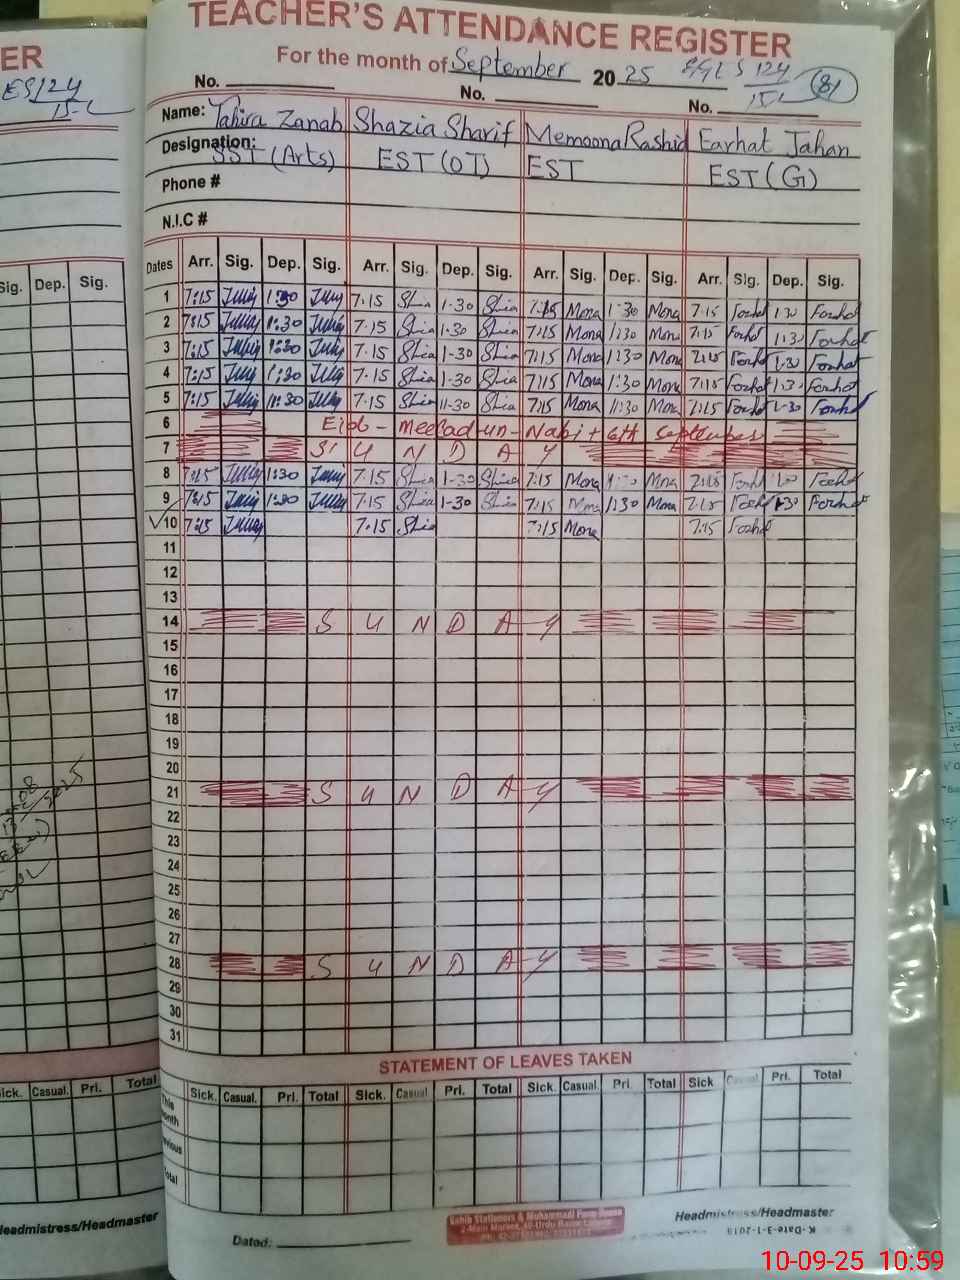 TEACHER'S ATTENDANCE REGISTER
ER
For the month of September 2025
ES124
15-L
No. No. No.
15-L 81
Name: Tahira Zanab Shazia Sharif Memoona Rashid Farhat Jahan
Designation: SST (Arts) EST (OT) EST EST (G)
Phone #
N.I.C #
Sig. Dep. Sig.
Dates Arr. Sig. Dep. Sig. Arr. Sig. Dep. Sig. Arr. Sig. Dep. Sig. Arr. Sig. Dep. Sig.
1 7:15 1:30 7.15 Shia 1-30 Shia 7:15 Mona 1:30 Mona 7:15 Farhat 1:30 Farhat
2 7:15 1:30 7.15 Shia 1-30 Shia 7:15 Mona 1:30 Mona 7:15 Farhat 1:30 Farhat
3 7:15 1:30 7.15 Shia 1-30 Shia 7:15 Mona 1:30 Mona 7:15 Farhat 1:30 Farhat
4 7:15 1:30 7.15 Shia 1-30 Shia 7:15 Mona 1:30 Mona 7:15 Farhat 1:30 Farhat
5 7:15 11:30 7.15 Shia 11-30 Shia 7:15 Mona 11:30 Mona 7:15 Farhat 11-30 Farhat
6 Eid-meelad-un-Nabi + 6th September
7 S U N D A Y
8 7:15 1:30 7.15 Shia 1-30 Shia 7:15 Mona 1:30 Mona 7:15 Farhat 1:30 Farhat
9 7:15 1:30 7.15 Shia 1-30 Shia 7:15 Mona 1:30 Mona 7:15 Farhat 1:30 Farhat
10 7:15 7.15 Shia 7:15 Mona 7:15 Farhat
11
12
13
14 S U N D A Y
15
16
17
18
19
20
21 S U N D A Y
22
23
24
25
26
27
28 S U N D A Y
29
30
31
STATEMENT OF LEAVES TAKEN
Sick. Casual. Pri. Total
Sick. Casual. Pri. Total Sick. Casual Pri. Total Sick. Casual. Pri. Total Sick Casual Pri. Total
This Month
Previous
Total
Headmistress/Headmaster
Headmistress/Headmaster
Dated:
10-09-25 10:59